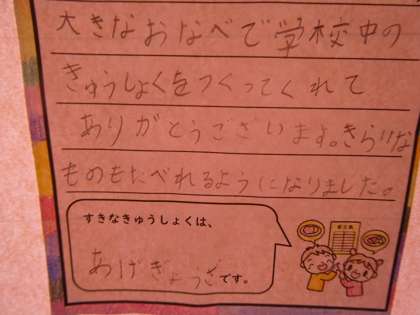 大きなおなべで学校中の
きゅうしょくをつくってくれて
ありがとうございます。きらいな
ものもたべれるようになりました。
すきなきゅうしょくは、
あげぎょうざです。